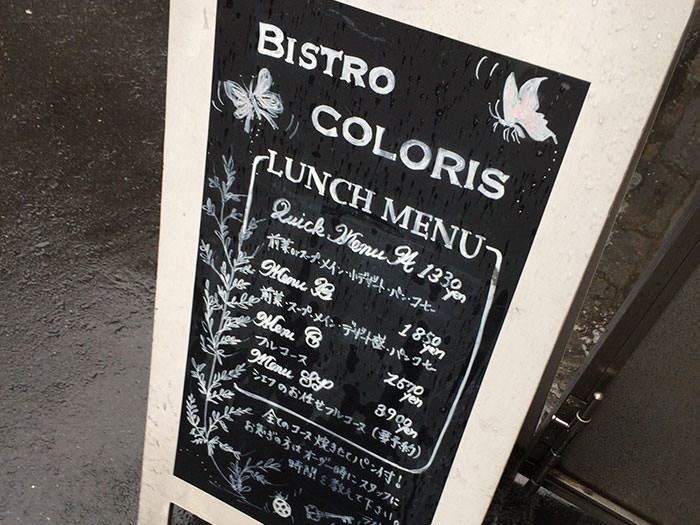 BISTRO
COLORIS
LUNCH MENU
Quick Menu A 1330 yen
前菜orスープ・メイン・小デザート・パン・コーヒー
Menu B 1850 yen
前菜・スープ・メイン・デザート・パン・コーヒー
Menu C 2570 yen
フルコース
Menu SP 3900 yen
シェフのお任せフルコース(要予約)
全てのコース焼きたてパン付!
お急ぎの方はオーダー時にスタッフに
時間を教えて下さい。